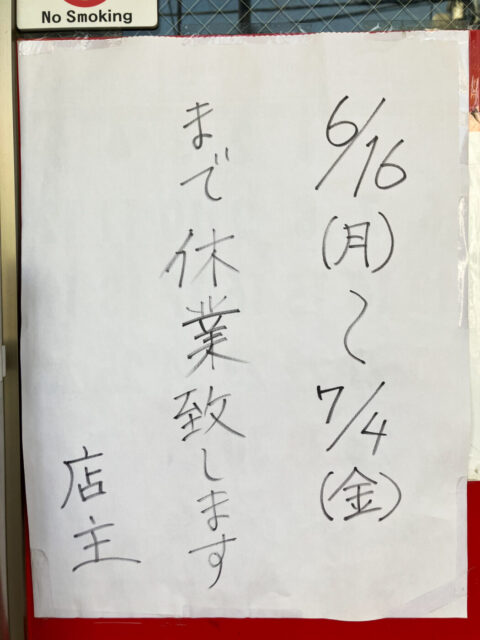 No Smoking
6/16(月)〜7/4(金)
まで休業致します
店主